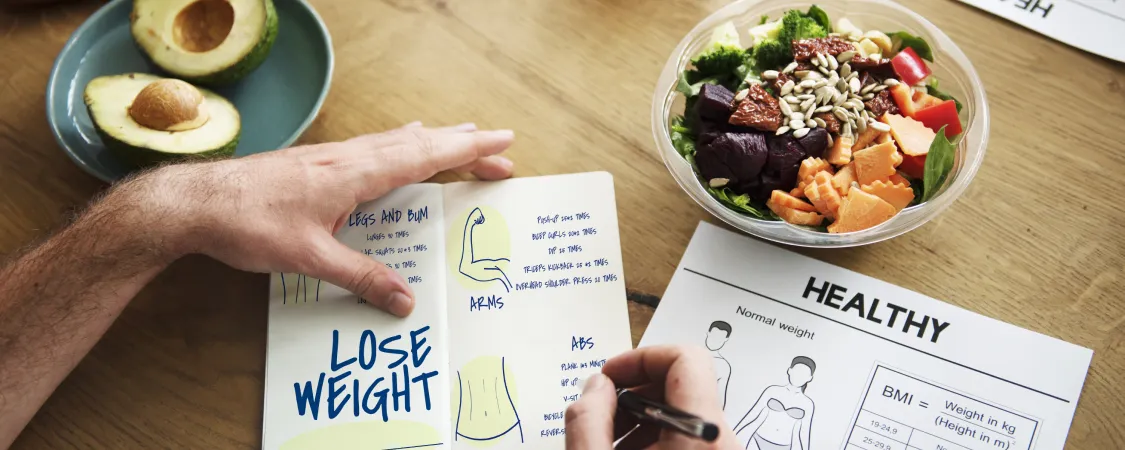 LEGS AND BUM
LUNGES 10 TIMES
SQUATS 20*3 TIMES
TIMES
TIMES
LOSE
WEIGHT
PUSH-UP 25*2 TIMES
BICEP CURLS 20*2 TIMES
DIP 25 TIMES
TRICEPS KICKBACK 25 *2 TIMES
OVERHEAD SHOULDER PRESS 25 TIMES
ARMS
ABS
PLANK 1*3 MINUTE
HIP UP
V-SIT
BICYCLE
REVERSE
HEALTHY
Normal weight
BMI = Weight in kg
(Height in m)²
19-24.9
25-29.9
HEA